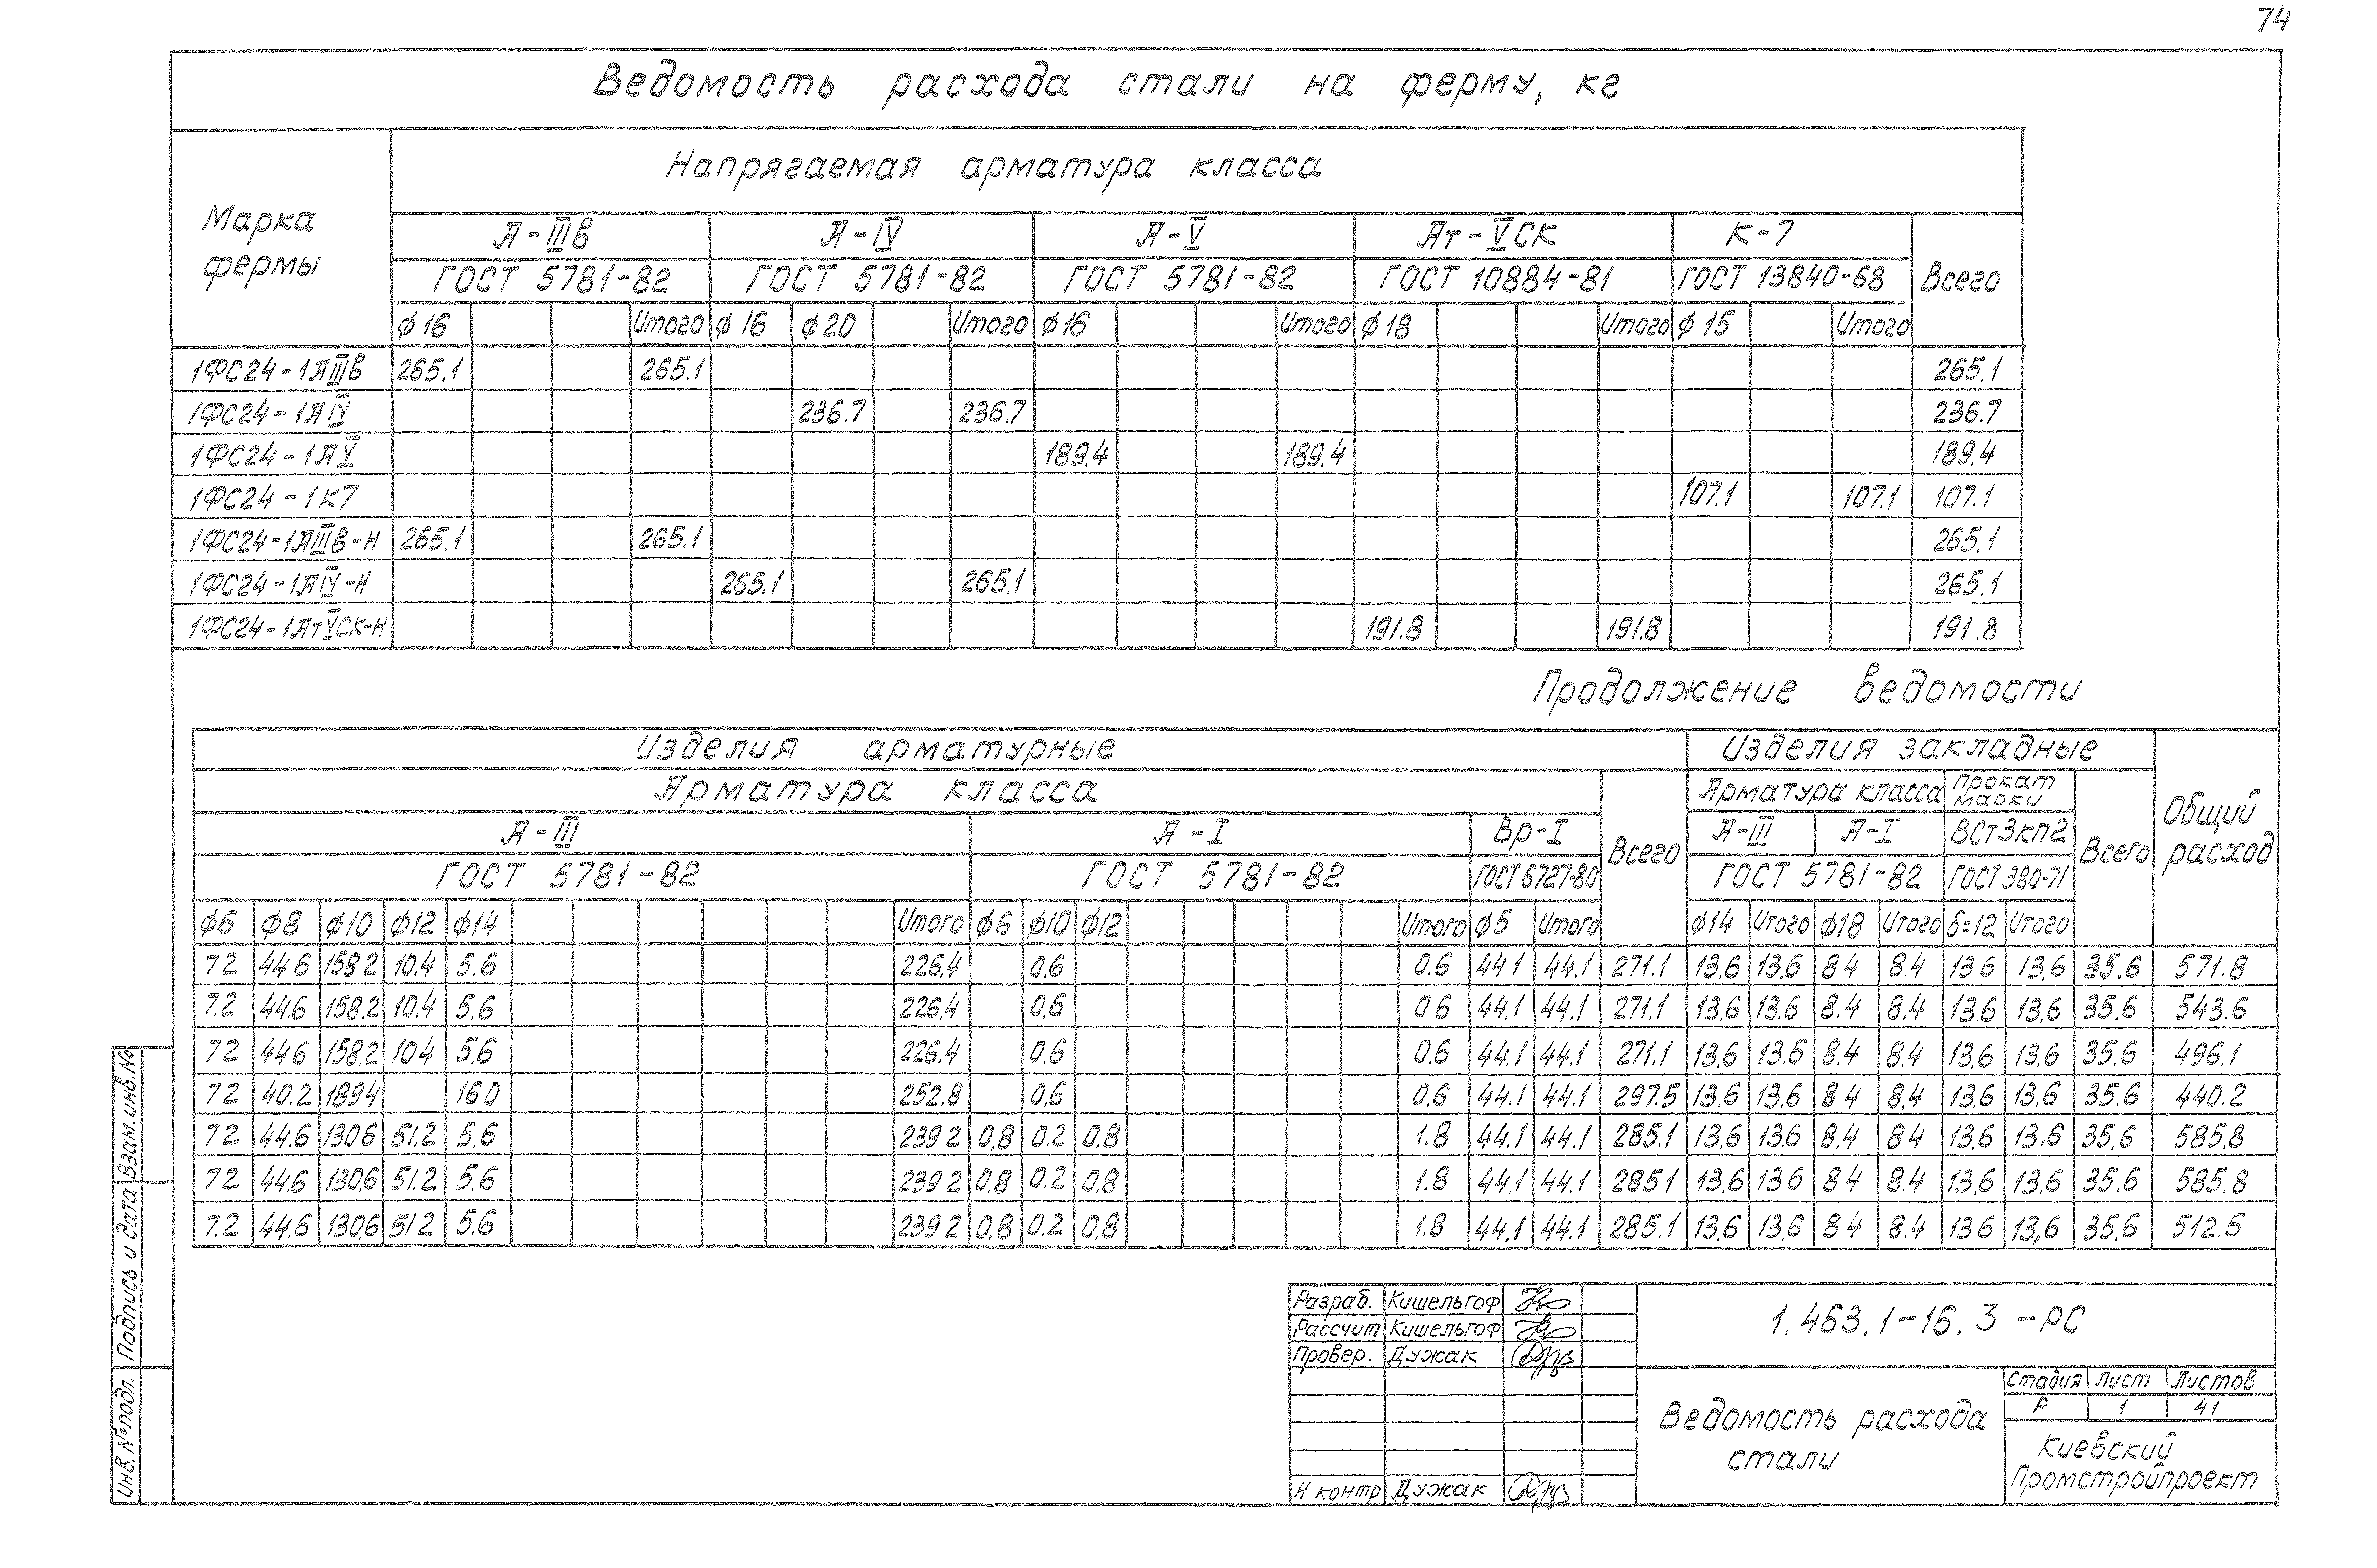 74
Ведомость расхода стали на ферму, кг
Марка фермы
Напрягаемая арматура класса
А-IIIв А-IV А-V Ат-VСК К-7 Всего
ГОСТ 5781-82 ГОСТ 5781-82 ГОСТ 5781-82 ГОСТ 10884-81 ГОСТ 13840-68
ф16 Итого ф16 ф20 Итого ф16 Итого ф18 Итого ф15 Итого
1ФС24-1АIIIв 265.1 265.1 265.1
1ФС24-1АIV 236.7 236.7 236.7
1ФС24-1АV 189.4 189.4 189.4
1ФС24-1К7 107.1 107.1 107.1
1ФС24-1АIIIв-Н 265.1 265.1 265.1
1ФС24-1АIV-Н 265.1 265.1 265.1
1ФС24-1АтVСК-Н 191.8 191.8 191.8
Продолжение ведомости
Изделия арматурные Изделия закладные Общий расход
Арматура класса Всего Арматура класса Прокат марки Всего
А-III А-I Вр-I А-III А-I ВСт3кп2
ГОСТ 5781-82 ГОСТ 5781-82 ГОСТ 6727-80 ГОСТ 5781-82 ГОСТ 380-71
ф6 ф8 ф10 ф12 ф14 Итого ф6 ф10 ф12 Итого ф5 Итого ф14 Итого ф18 Итого δ=12 Итого
72 44.6 158 2 10.4 5.6 226.4 0.6 0.6 44 1 44.1 271.1 13.6 13.6 8 4 8.4 13 6 13.6 35.6 571.8
7.2 44.6 158.2 10.4 5.6 226.4 0.6 0 6 44.1 44.1 271.1 13.6 13.6 8.4 8.4 13.6 13.6 35.6 543.6
72 44 6 158.2 10 4 5.6 226.4 0.6 0.6 44.1 44.1 271.1 13.6 13.6 8.4 8.4 13.6 13.6 35.6 496.1
72 40.2 189 4 16 0 252.8 0.6 0.6 44.1 44.1 297.5 13.6 13.6 8 4 8.4 13.6 13.6 35.6 440.2
72 44.6 130 6 51.2 5.6 239 2 0.8 0.2 0.8 1.8 44.1 44.1 285.1 13.6 13.6 8.4 8 4 13.6 13.6 35.6 585.8
72 44.6 130.6 51.2 5.6 239 2 0.8 0.2 0.8 1.8 44.1 44.1 285 1 13.6 13 6 8 4 8.4 13.6 13.6 35.6 585.8
7.2 44.6 130.6 51 2 5.6 239 2 0.8 0.2 0.8 1.8 44.1 44.1 285.1 13.6 13.6 8 4 8.4 13 6 13,6 35.6 512.5
Взам. инв. №
Подпись и дата
Инв. № подл.
Разраб. Кишельгоф
Рассчит Кишельгоф
Провер. Дужак
Н контр Дужак
1.463.1-16.3-РС
Ведомость расхода
стали
Стадия Лист Листов
Р 1 41
Киевский
Промстройпроект